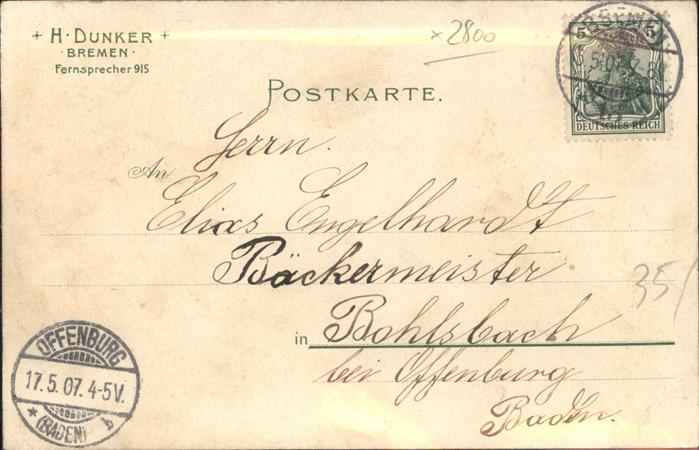 H. DUNKER
BREMEN
Fernsprecher 915
× 2800
5
DEUTSCHES REICH
POSTKARTE.
An
Herrn.
Elias Engelhardt
Bäckermeister
in Bohlsbach
bei Offenburg
Baden.
35/
OFFENBURG
17.5.07.4-5V.
* (BADEN) b